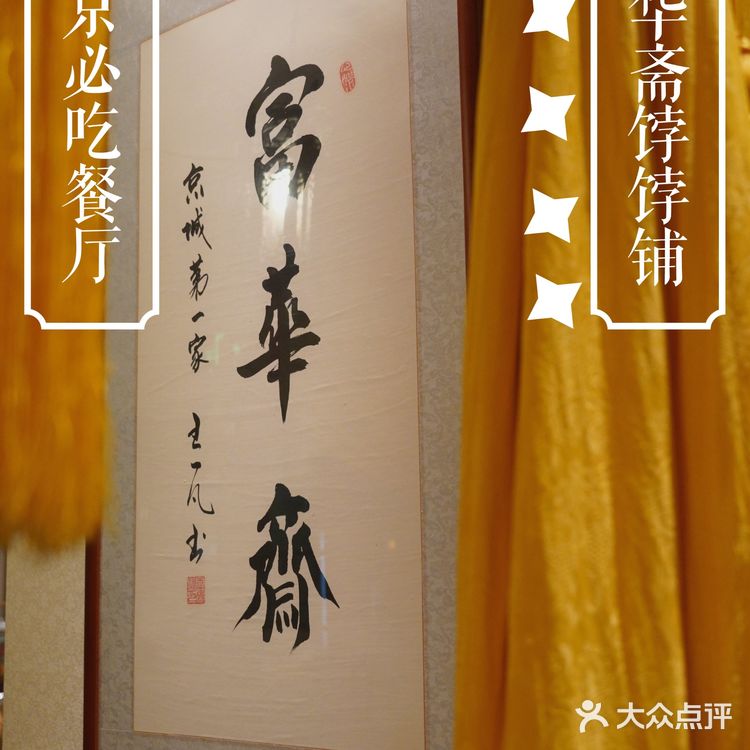 京必吃餐厅
华斋饽饽铺
富華齋
京城第一家 王一凡书
大众点评